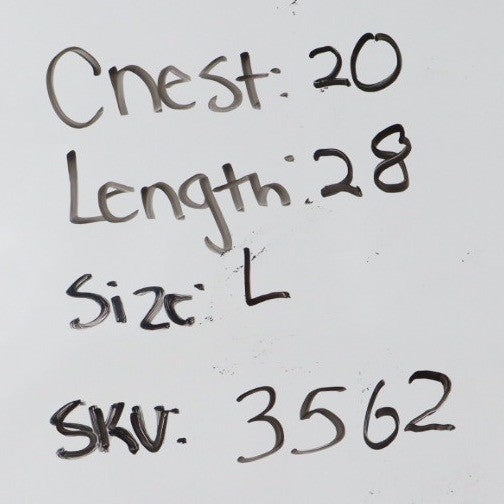 Chest: 20
Length: 28
Size: L
SKU: 3562